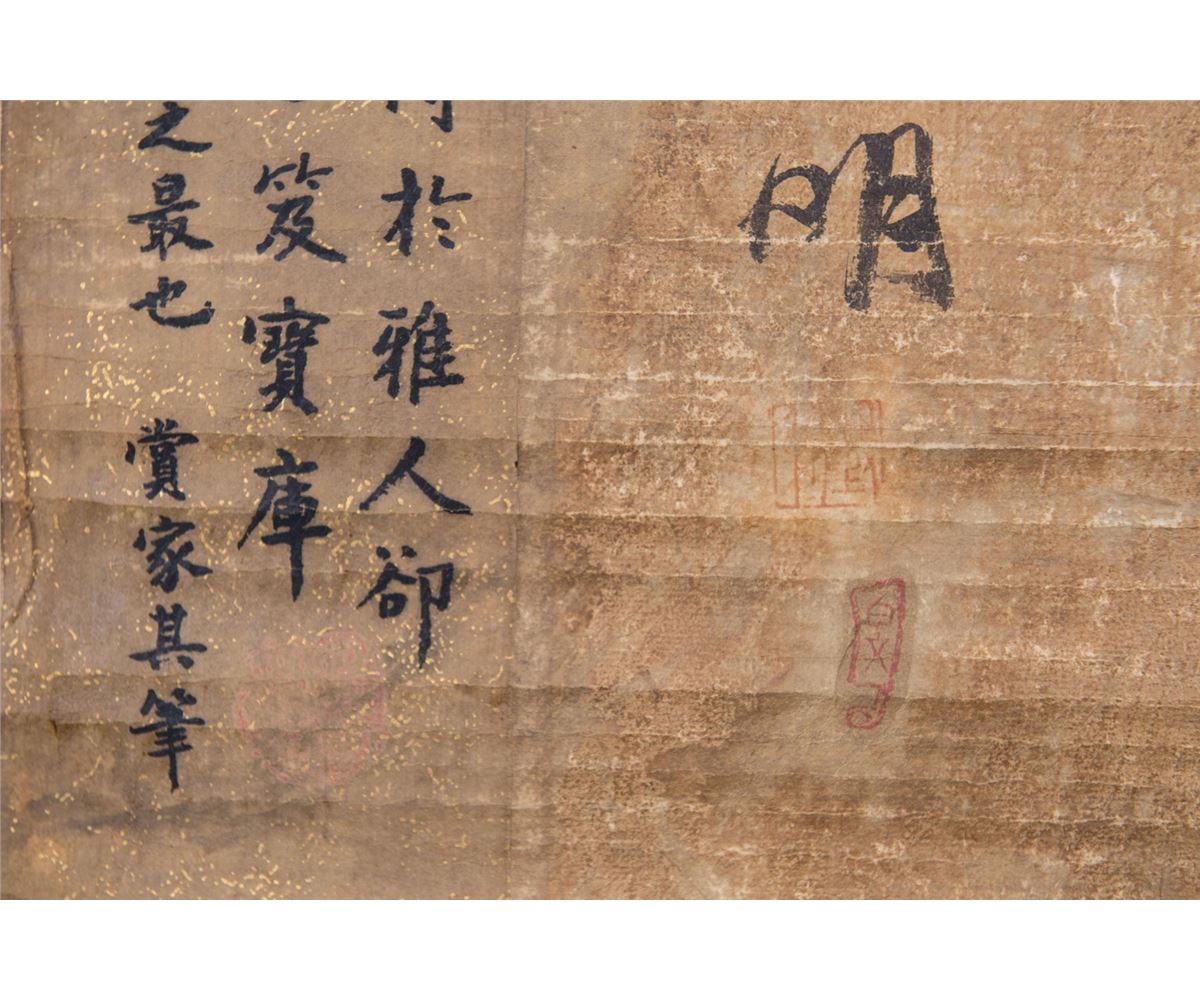 明
於雅人卻
笈寶庫
之最也 賞家其筆